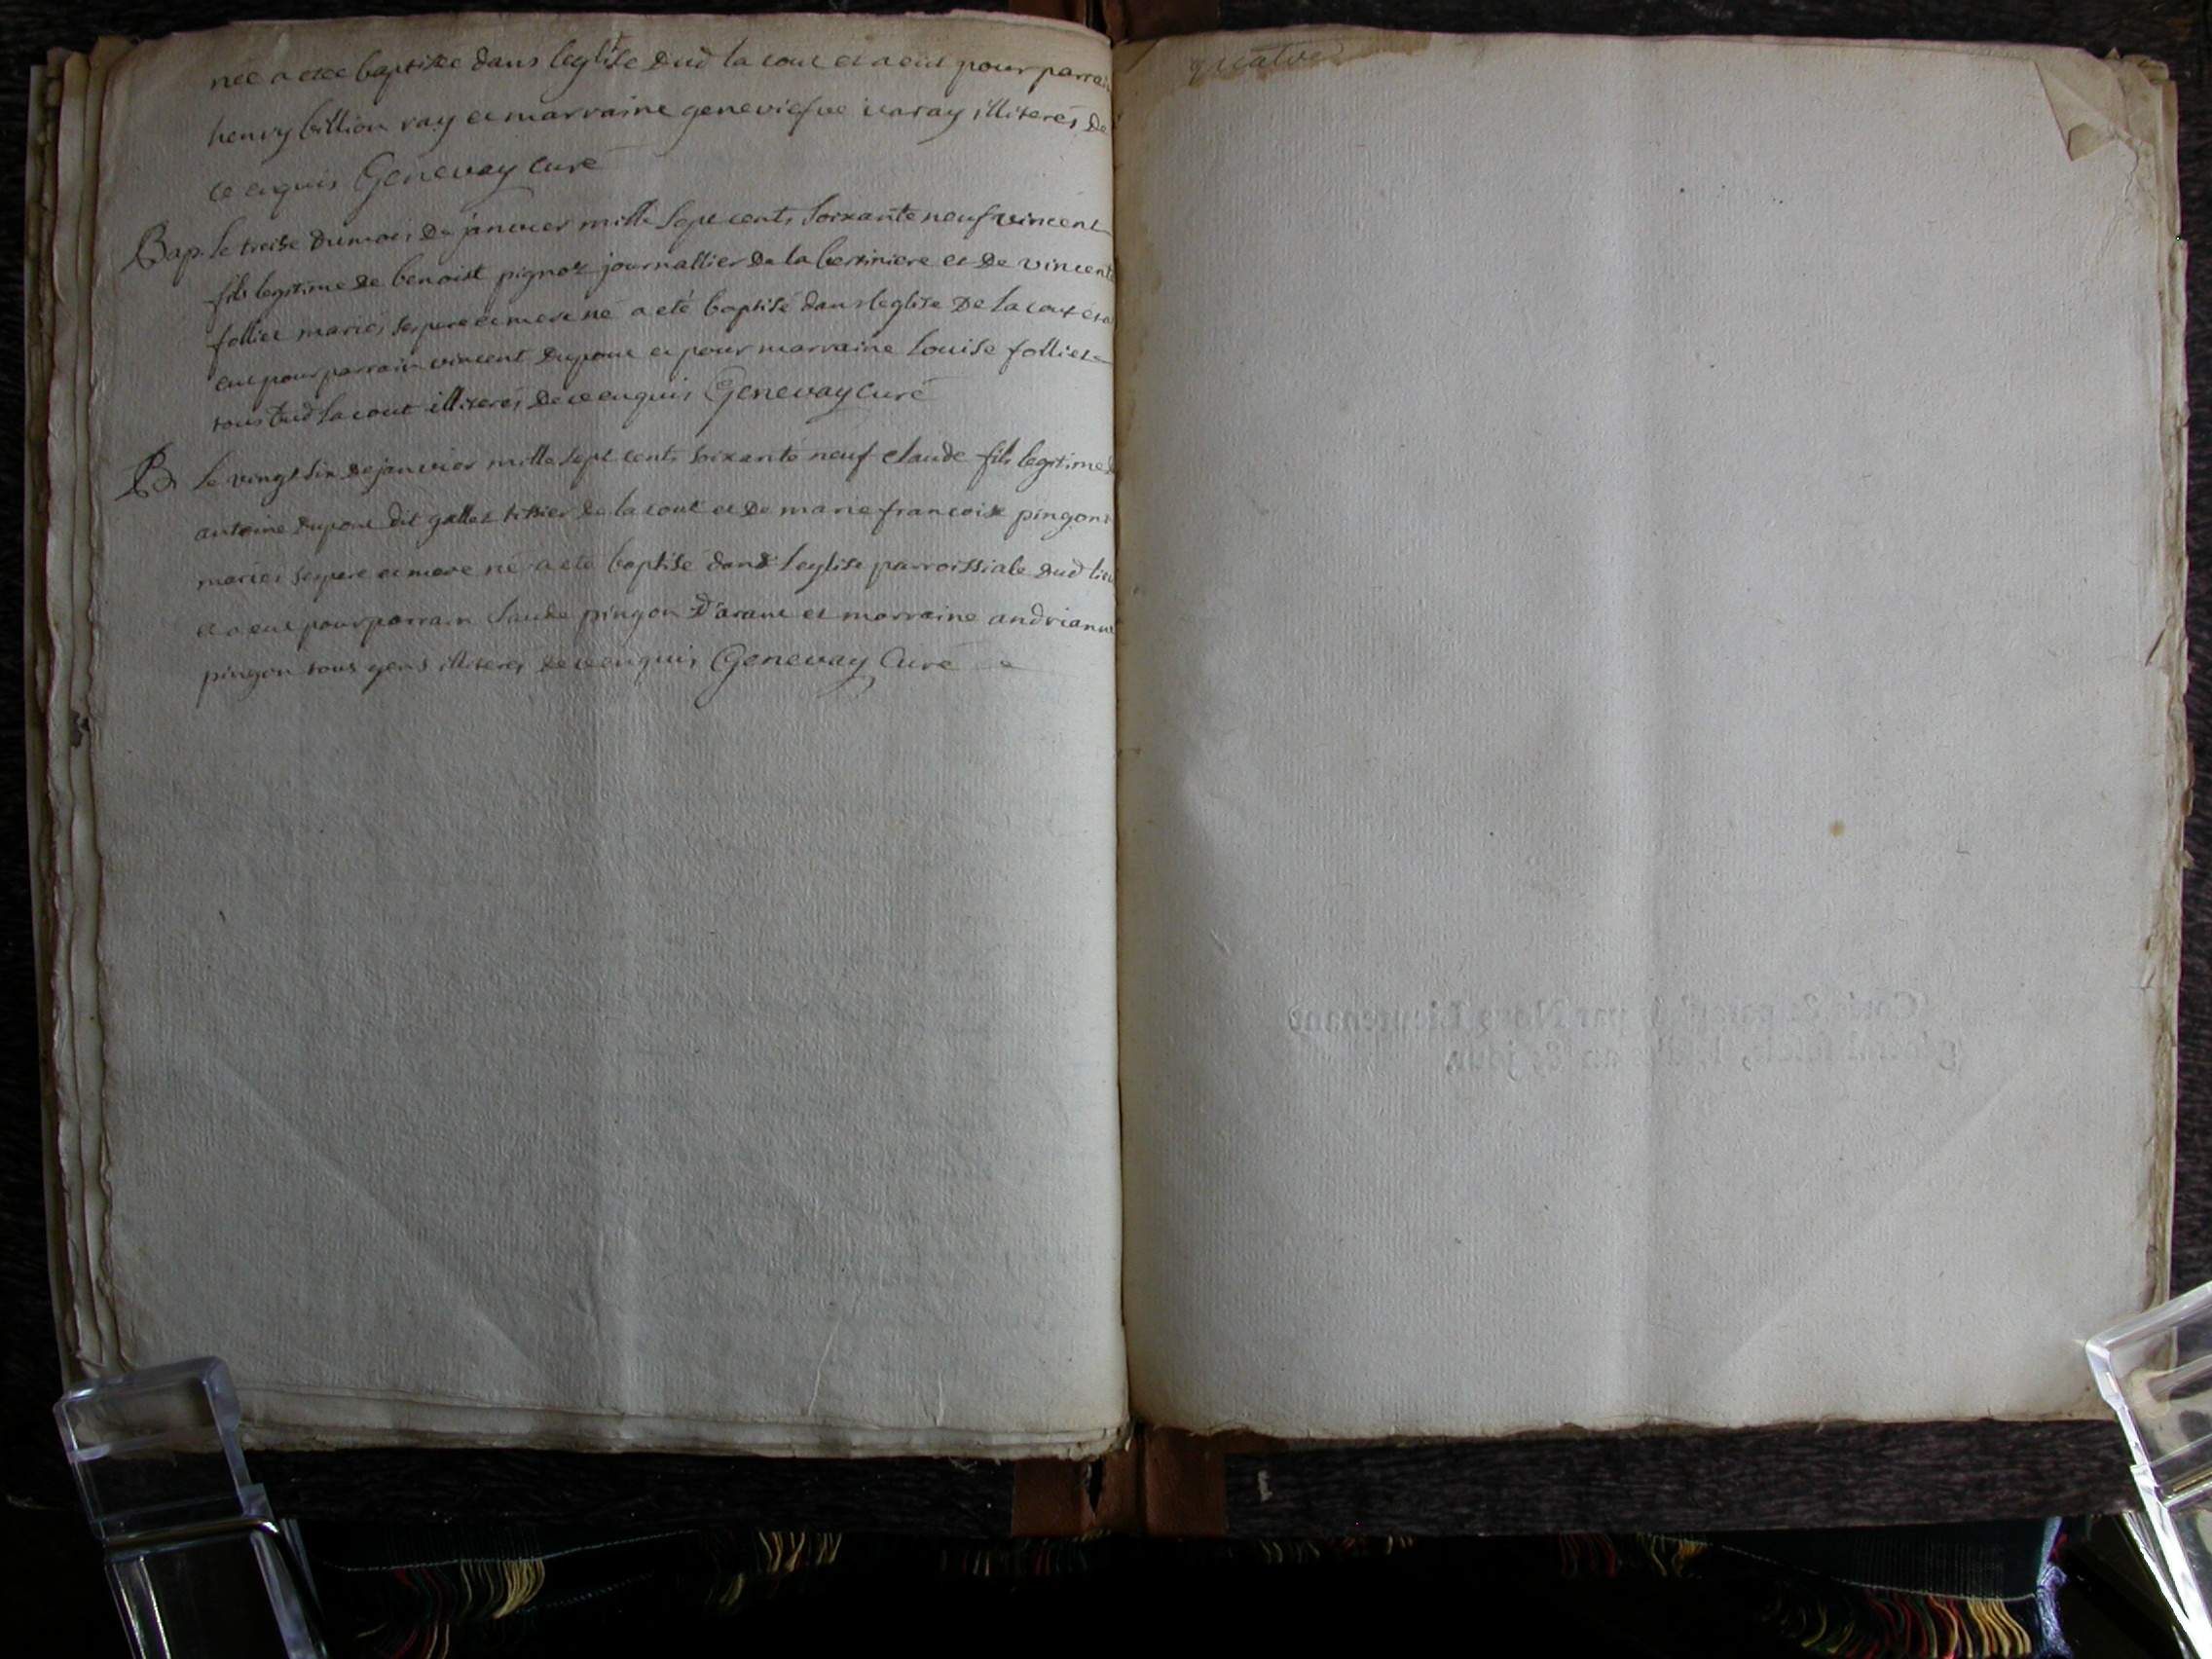 née a etee baptisee dans leglise dud la cout et a eut pour parrain
henry billion ray et marraine geneviefve varay illiterés de
ce enquis Genevay Curé
Bap. le treise du mois de janvier mille sept cents soixante neuf vincent
fils legitime de benoist pignoz journallier de la bertiniere et de vincente
folliet mariés ses pere et mere né a eté baptisé dans leglise de la cout et a
eut pour parrain vincent dupont et pour marraine louise folliet
tous dud la cout illiterés de ce enquis Genevay Curé
B. le vingt six de janvier mille sept cents soixante neuf claude fils legitime d
antoine dupont dit gallet tissier de la cout et de marie francoise pingon
mariés ses pere et mere né a eté baptisé dans leglise parroissiale dud lieu
et a eut pour parrain claude pingon d'arane et marraine andrianne
pingon tous gens illiterés de ce enquis Genevay Curé
quatre
Coté & paraphé par Nous Lieutenant
général susdit, lesdits an & jour